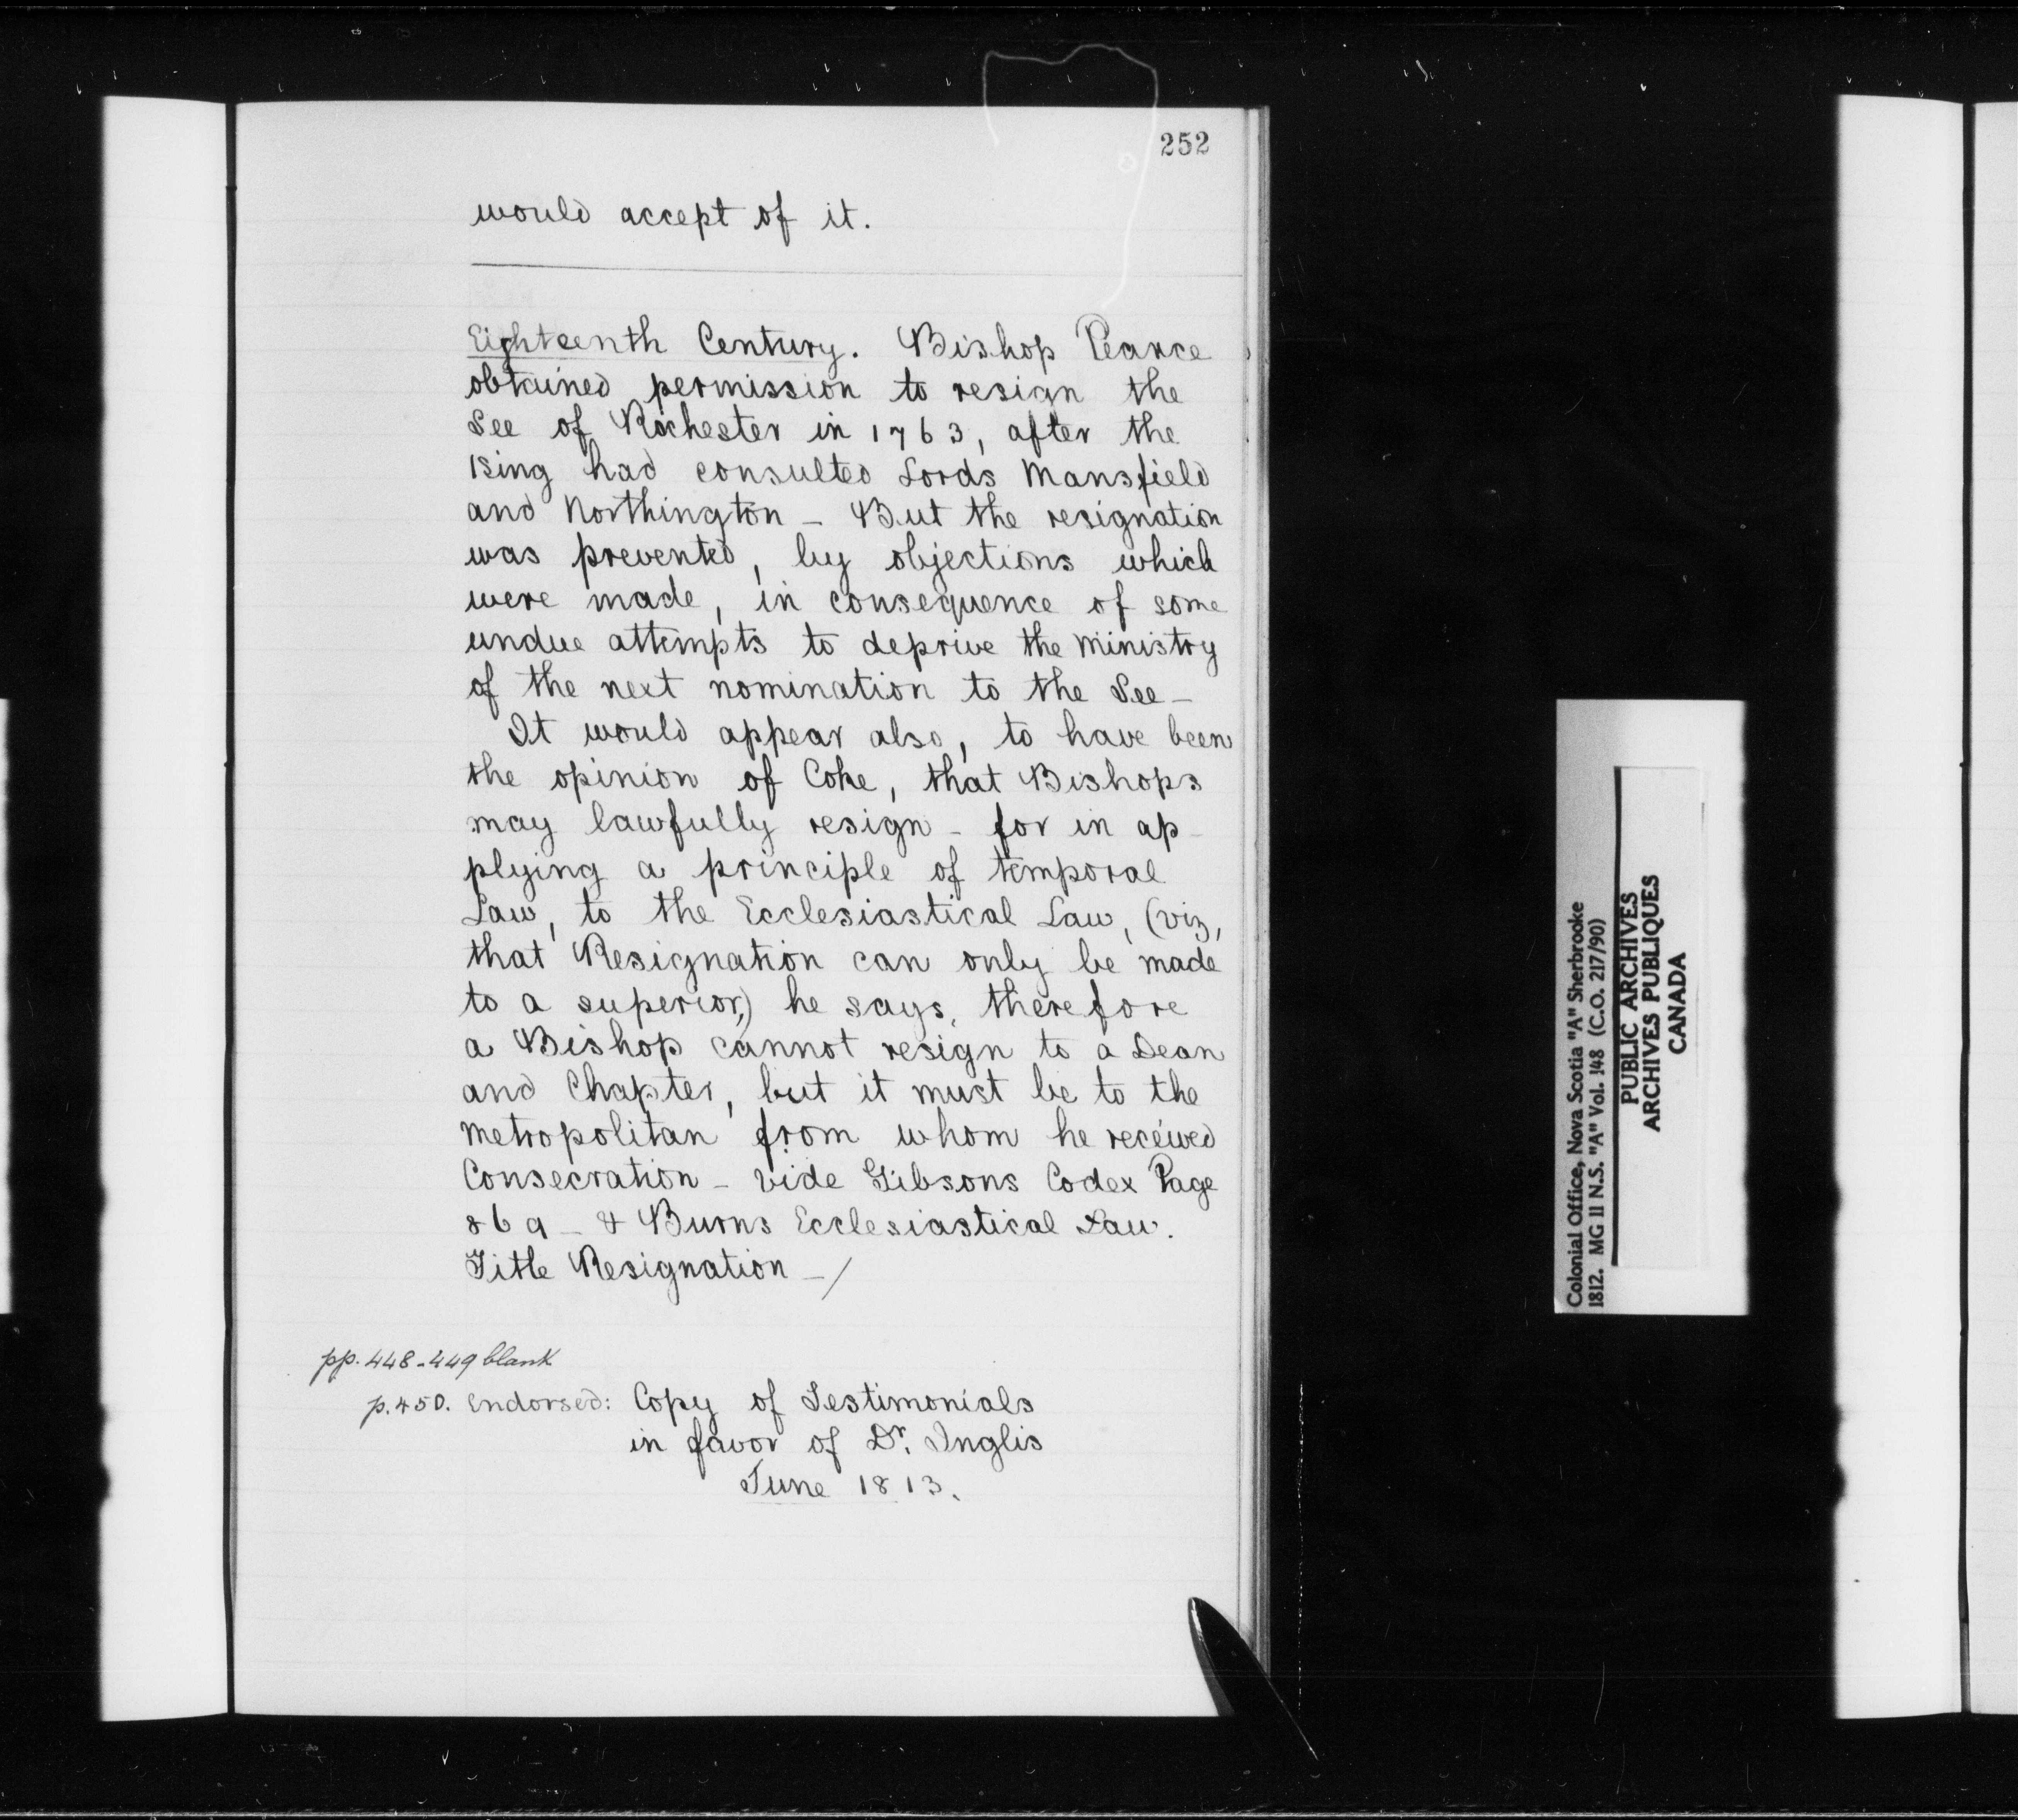 252
would accept of it.
Eighteenth Century. Bishop Pearce
obtained permission to resign the
See of Rochester in 1763, after the
King had consulted Lords Mansfield
and Northington - But the resignation
was prevented, by objections which
were made, in consequence of some
undue attempts to deprive the Ministry
of the next nomination to the See -
It would appear also, to have been
the opinion of Coke, that Bishops
may lawfully resign - for in ap-
plying a principle of temporal
Law, to the Ecclesiastical Law, (viz,
that Resignation can only be made
to a superior,) he says, therefore
a Bishop cannot resign to a Dean
and Chapter, but it must be to the
Metropolitan from whom he received
Consecration - vide Gibsons Codex Page
869 - & Burns Ecclesiastical Law.
Title Resignation - /
pp. 448-449 blank
p. 450. Endorsed: Copy of Testimonials
in favor of Dr. Inglis
June 1813.
Colonial Office, Nova Scotia "A" Sherbrooke
1812. MG 11 N.S. "A" Vol. 148 (C.O. 217/90)
PUBLIC ARCHIVES
ARCHIVES PUBLIQUES
CANADA